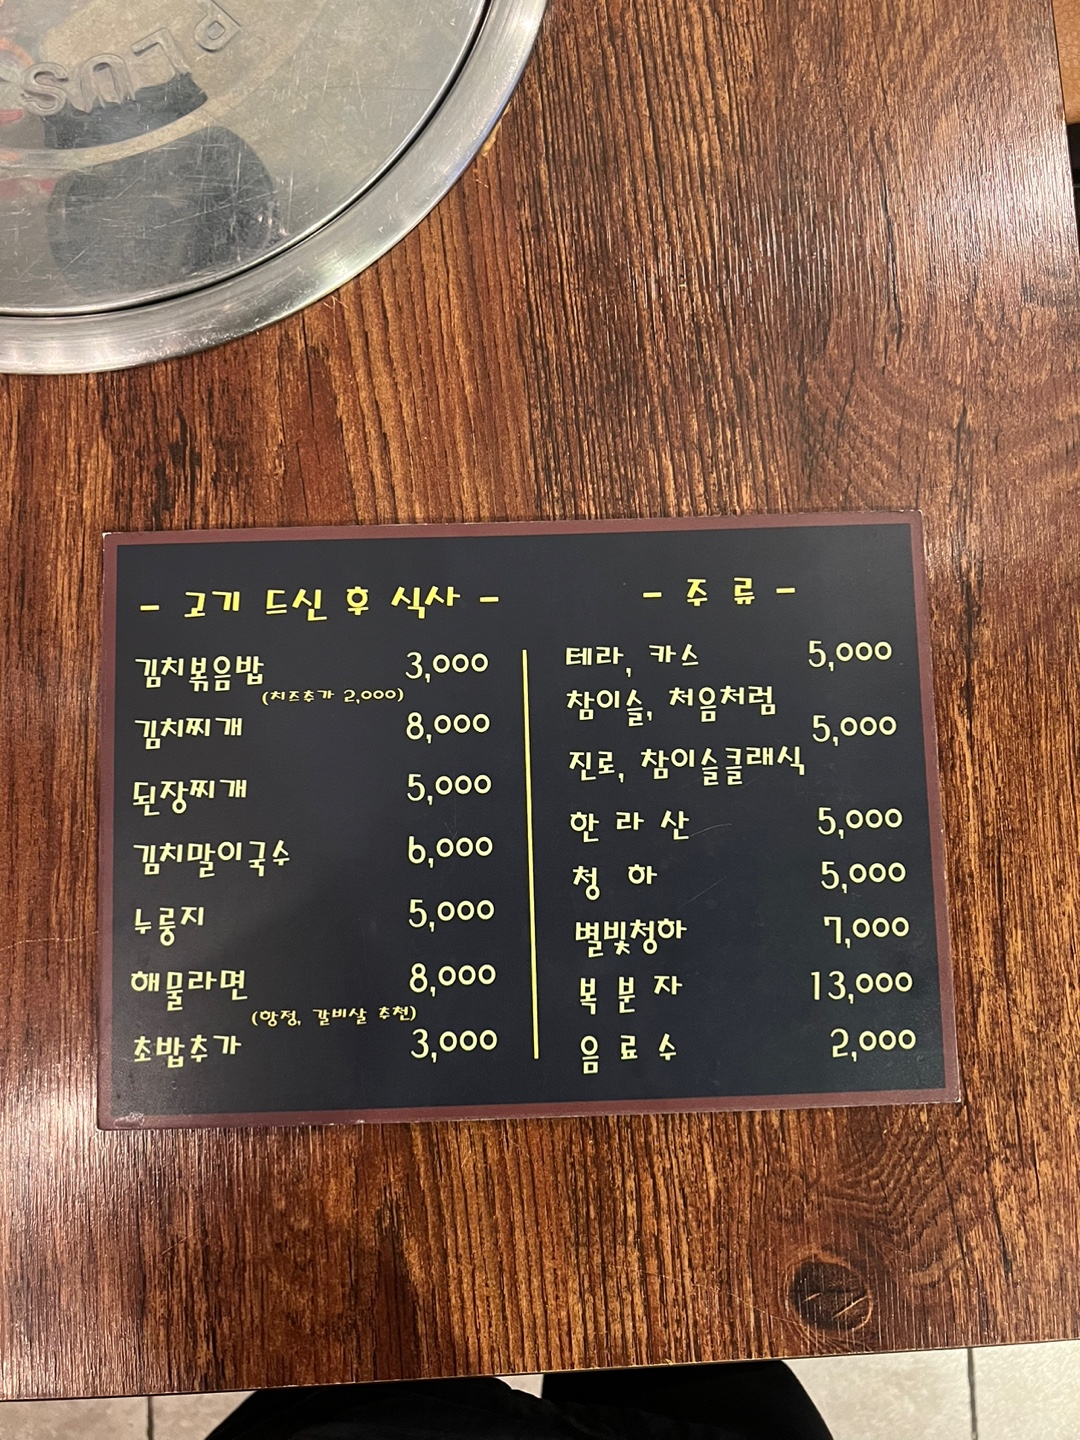 PLUS
- 고기 드신 후 식사 -
김치볶음밥 3,000
(치즈추가 2,000)
김치찌개 8,000
된장찌개 5,000
김치말이국수 6,000
누룽지 5,000
해물라면 8,000
(항정, 갈비살 추천)
초밥추가 3,000
- 주 류 -
테라, 카스 5,000
참이슬, 처음처럼
5,000
진로, 참이슬클래식
한 라 산 5,000
청 하 5,000
별빛청하 7,000
복 분 자 13,000
음 료 수 2,000